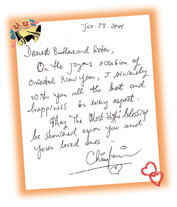 Jan. 23, 2004
Dearest Brothers and Sisters,
On the joyous occasion of
Oriental New Year, I sincerely
wish you all the best and
happiness in every aspect.
May The Most High's blessing
be showered upon you and
your loved ones!